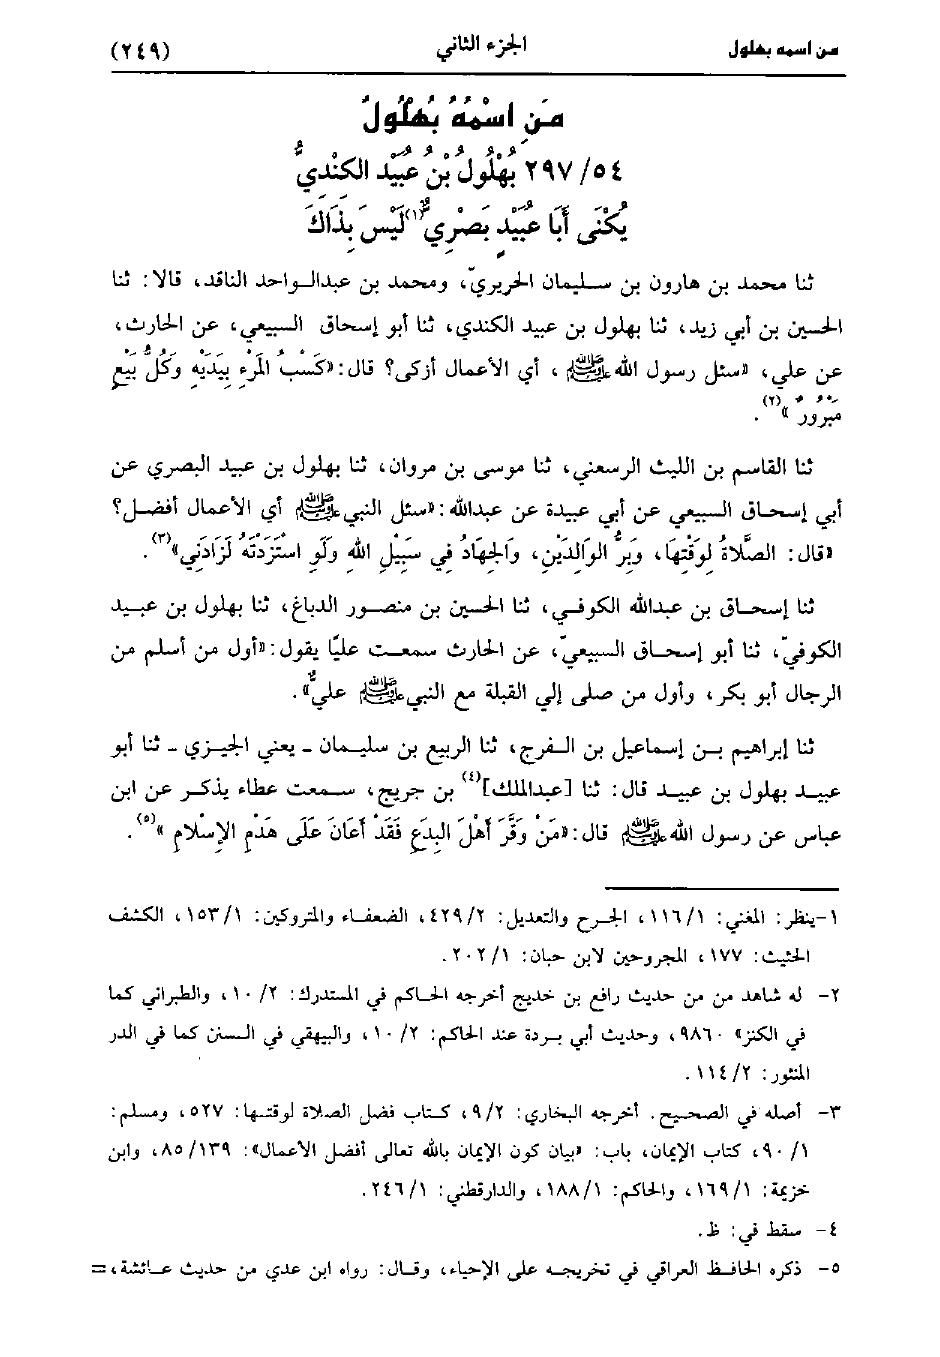 من اسمه بهلول الجزء الثاني (٢٤٩)
مَنِ اسْمُهُ بُهْلُولُ
٢٩٧/٥٤ بُهْلُولُ بْنُ عُبَيْدٍ الكِنْدِيُّ
يُكْنَى أَبَا عُبَيْدٍ بَصْرِيٌّ(١) لَيْسَ بِذَاكَ
ثنا محمد بن هارون بن سليمان الحريريّ، ومحمد بن عبدالواحد الناقد، قالا: ثنا
الحسين بن أبي زيد، ثنا بهلول بن عبيد الكندي، ثنا أبو إسحاق السبيعي، عن الحارث،
عن علي، «سئل رسول الله ﷺ، أي الأعمال أزكى؟ قال: «كَسْبُ المَرْءِ بِيَدَيْهِ وَكُلُّ بَيْعٍ
مَبْرُورٌ»(٢).
ثنا القاسم بن الليث الرسعني، ثنا موسى بن مروان، ثنا بهلول بن عبيد البصري عن
أبي إسحاق السبيعي عن أبي عبيدة عن عبدالله: «سئل النبي ﷺ أي الأعمال أفضل؟
«قال: الصَّلاَةُ لِوَقْتِهَا، وَبِرُّ الوَالِدَيْنِ، وَالجِهَادُ فِي سَبِيْلِ اللهِ وَلَوِ اسْتَزَدْتُهُ لَزَادَنِي»(٣).
ثنا إسحاق بن عبدالله الكوفي، ثنا الحسين بن منصور الدباغ، ثنا بهلول بن عبيد
الكوفيّ، ثنا أبو إسحاق السبيعيّ، عن الحارث سمعت عليًا يقول: «أول من أسلم من
الرجال أبو بكر، وأول من صلى إلي القبلة مع النبي ﷺ عليٌّ».
ثنا إبراهيم بن إسماعيل بن الفرج، ثنا الربيع بن سليمان ـ يعني الجيزي ـ ثنا أبو
عبيد بهلول بن عبيد قال: ثنا [عبدالملك](٤) بن جريج، سمعت عطاء يذكر عن ابن
عباس عن رسول الله ﷺ قال: «مَنْ وَقَّرَ أَهْلَ البِدَعِ فَقَدْ أَعَانَ عَلَى هَدْمِ الإِسْلاَمِ»(٥).
١-ينظر: المغني: ١١٦/١، الجرح والتعديل: ٤٢٩/٢، الضعفاء والمتروكين: ١٥٣/١، الكشف
الحثيث: ١٧٧، المجروحين لابن حبان: ٢٠٢/١.
٢- له شاهد من من حديث رافع بن خديج أخرجه الحاكم في المستدرك: ١٠/٢، والطبراني كما
في الكنز» ٩٨٦٠، وحديث أبي بردة عند الحاكم: ١٠/٢، والبيهقي في السنن كما في الدر
المنثور: ١١٤/٢.
٣- أصله في الصحيح. أخرجه البخاري: ٩/٢، كتاب فضل الصلاة لوقتها: ٥٢٧، ومسلم:
٩٠/١، كتاب الإيمان، باب: «بيان كون الإيمان بالله تعالى أفضل الأعمال»: ٨٥/١٣٩، وابن
خزيمة: ١٦٩/١، والحاكم: ١٨٨/١، والدارقطني: ٢٤٦/١.
٤- سقط في: ظ.
٥- ذكره الحافظ العراقي في تخريجه على الإحياء، وقال: رواه ابن عدي من حديث عائشة، =